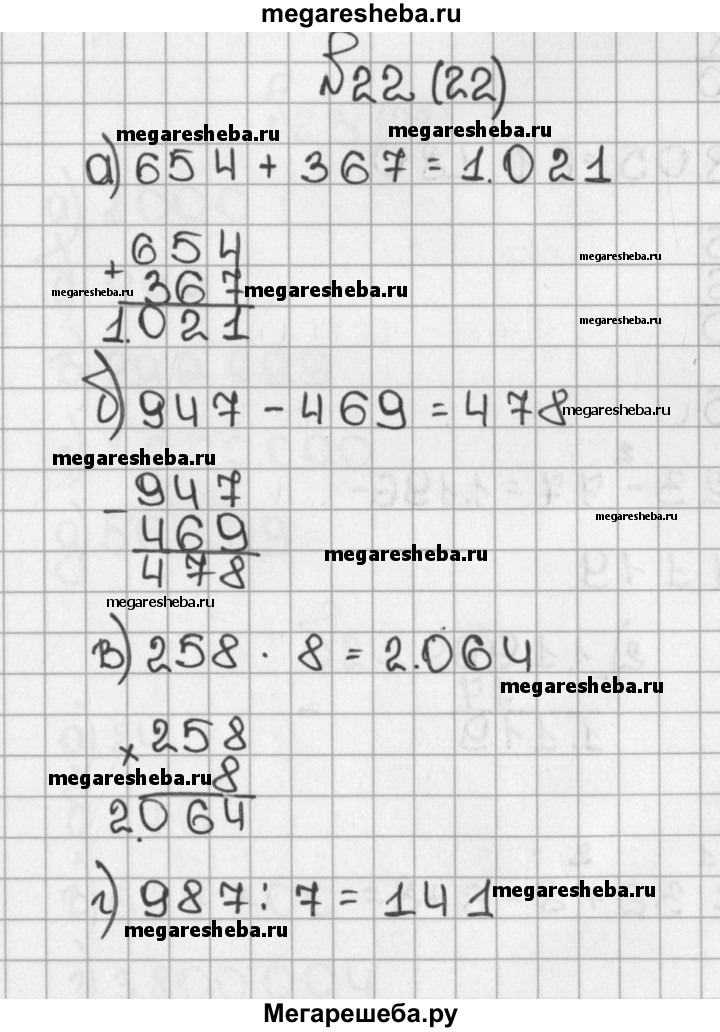 megaresheba.ru
№22 (22)
megaresheba.ru megaresheba.ru
а) 654 + 367 = 1.021
+ 654
megaresheba.ru
megaresheba.ru 367 megaresheba.ru
1.021
megaresheba.ru
б) 947 - 469 = 478 megaresheba.ru
megaresheba.ru
- 947
469
megaresheba.ru
megaresheba.ru
478
megaresheba.ru
в) 258 · 8 = 2.064
megaresheba.ru
× 258
megaresheba.ru 8
2.064
г) 987 : 7 = 141 megaresheba.ru
megaresheba.ru
Мегарешеба.ру